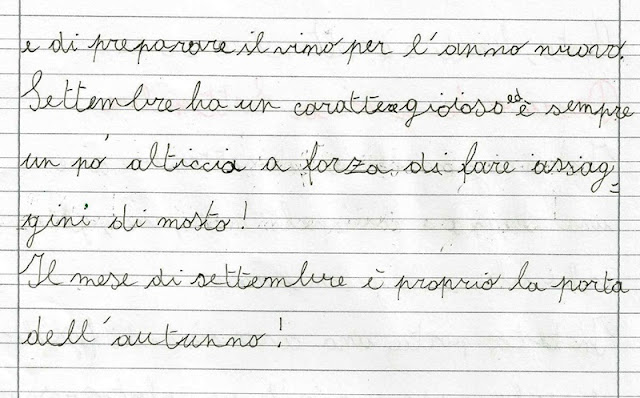 e di preparare il vino per l'anno nuovo.
Settembre ha un carattere gioioso ed è sempre
un po' alticcia a forza di fare assag-
gini di mosto!
Il mese di settembre è proprio la porta
dell'autunno!